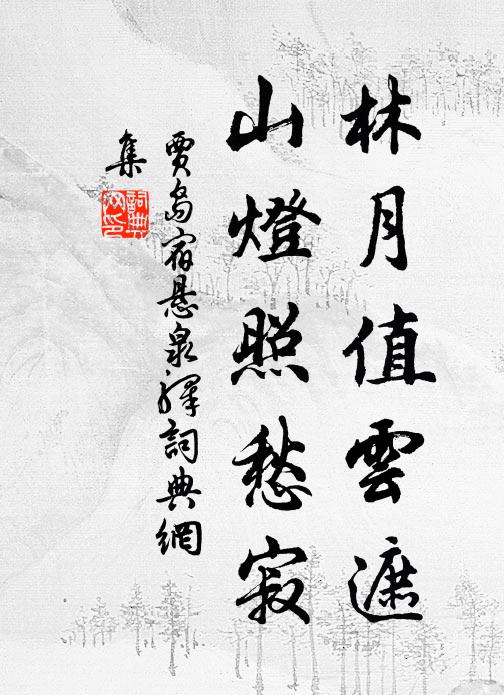 林月值雲遮
山燈照愁寂
賈島宿懸泉驛詞典網
集
詞典網印